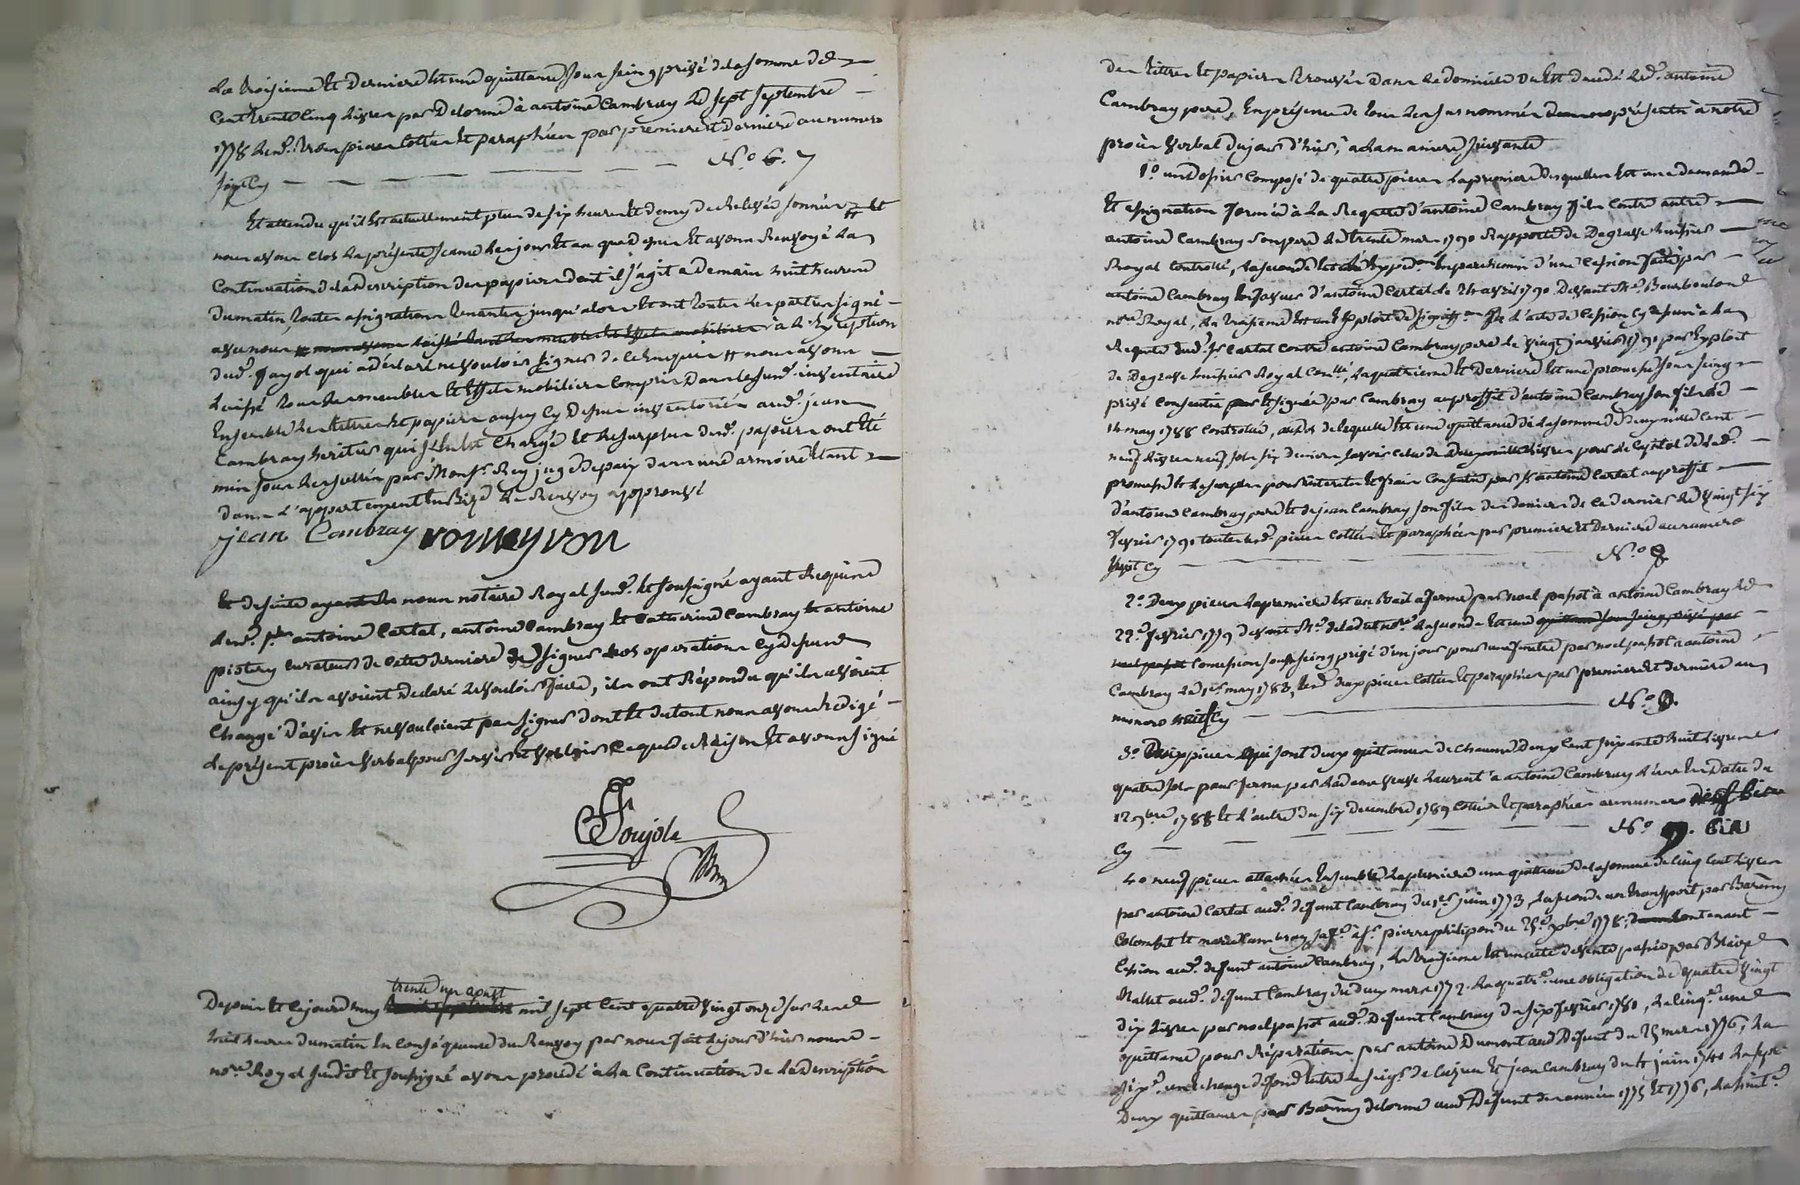 La troisieme et derniere est une quittance sous seing privé de la somme de
Cent trente cinq livres par Delorme à antoine Cambray le sept septembre
1778 lesd. trois pieces cottées et paraphées par premiere et derniere au numero
sixt Cy N.o 6. 7
Et attendu qu'il est actuellement plus de six heures et demy de relevée sonnées et
nous avons clos la présente seance les jour et an que dessus et avons renvoyé la
continuation de la description des papiers dont il s'agit a demain huit heures
du matin, toutes assignations tenantes jusqu'alors et ont toutes les parties signé
avec nous a l'exception
dud. fayol qui a déclaré ne vouloir signer de ce enquis # nous avons
laissé tous les meubles et effets mobiliers compris dans le susd. inventaire
Ensemble les titres et papiers aussy cy dessus inventoriés aud. jean
Cambray heritier qui s'en est chargé et le surplus desd. papiers ont été
mis sous les scellés par Monsr. Rey juge de paix dans une armoire étant
dans l'appartement le renvoy approuvé
jean Cambray romeyron
et de suite nous notaire Royal susd. et soussigné ayant requis
lesd. srs. antoine Cartal, antoine Cambray et Catherine Cambray et antoine
pistery curateur de cette derniere de signer nos operations cy dessus
ainsy qu'ils avoient declaré le vouloir faire, ils ont répondu qu'ils avoient
changé d'avis et ne vouloient pas signer dont et du tout nous avons rédigé
le présent procès verbal pour servir et valoir ce que de raison et avons signé
Soujols
trente un aoust
Depuis et cejourd'huy mil sept cent quatre vingt onze sur les
huit heures du matin en conséquence du renvoy par nous fait le jour d'hier nous
nore. Royal susdit et soussigné avons procédé à la continuation de la description
des titres et papiers trouvés dans le domicile où est decedé led. antoine
Cambray pere, en présence de tous les susnommés présents à notre
procès verbal du jour d'hier, à la maniere suivante
1.o un dossier composé de quatre pieces la premiere desquelles est une demande
et assignation formée à la Requete d'antoine Cambray fils contre autre
antoine Cambray son pere le trente mars 1790 Rapporté de Degrasse huissier
Royal controllé, la seconde est expedon. en parchemin d'une cession faite par
antoine Cambray en faveur d'antoine Cartal le avril 1790 devant Me. Bourboulond
nore. Royal, la troisieme est un exploit de signiffon. de l'acte de cession cy dessus à la
Requete dud. sr. Cartal contre antoine Cambray pere le vingt janvier 1791 par exploit
de Degrasse huissier Royal conlle., la quatrieme et derniere est une promesse sous seing
privé consentie et signée par Cambray au proffit d'antoine Cambray son fils le
14 may 1788 controlée, au dos de laquelle est une quittance de la somme de deux mille cent
neuf livres neuf sols six deniers savoir celle de deux mille livres pour le capital de lad.
promesse et le surplus pour interets et frais consentie par sr antoine Cartal au proffit
d'antoine Cambray pere et de jean Cambray son fils des deniers de ce dernier le vingt six
fevrier 1791 toutes lesd. pieces cottées et paraphées par premiere et derniere au numero
huit cy N.o 8
2.o Deux pieces la premiere est un Bail a ferme par noel pahot à antoine Cambray le
22e. fevrier 1779 devant Me. nore. la seconde est une
commission sous seing privé d'un jour pour une fenetre par noel pahot a antoine
Cambray le 1er. may 1783, lesd. deux pieces cottées et paraphées par premiere et derniere au
numero neuf cy N.o 9.
3.o Deux pieces qui sont deux quittances de chacune deux cent soixante huit livres
quatre sols pour ferme par la dame veuve Laurent a antoine Cambray l'une en datte du
12 9bre. 1788 et l'autre du six decembre 1789 cottées et paraphées au numero neuf bis
Cy N.o 9. Bis
4.o neuf pieces attachées ensemble la premiere une quittance de la somme de cinq cent livres
par antoine Cartal aud. défunt Cambray du 1er. juin 1773, la seconde un transport par Barmy
Colombet et marie Cambray sa fe. à sr. pierre philipon du 25e. xbre. 1778, contenant
cession aud. defunt antoine Cambray, la troisieme est une vente passée par Blaise
Mallet aud. defunt Cambray du deux mars 1772. la quatre. une obligation de quatre vingt
dix livres par noel pahot aud. Defunt Cambray du six fevrier 1780, la cinqe. une
quittance pour réparations par antoine Dumont aud. Defunt du 25 mars 1776, la
sixe. un echange de fonds entre le seigr. de Cuzieu et jean Cambray du 4 juin 1740 la septe.
Deux quittances par Barmy delorme aud. Defunt des années 1775 et 1776, la huite.